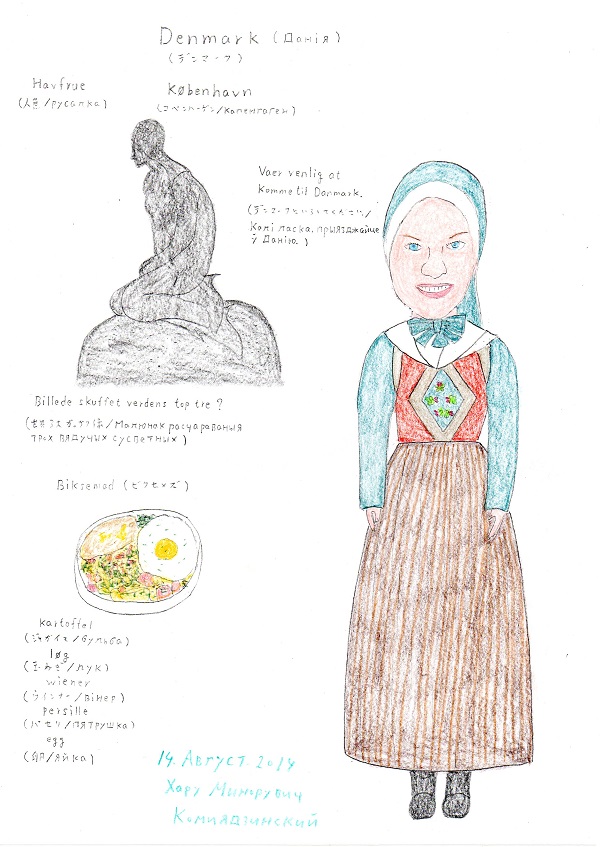 Denmark (Данія)
(デンマーク)
Havfrue
(人魚/русалка)
København
(コペンハーゲン/Капенгаген)
Vaer venlig at
komme til Danmark.
(デンマークにいらしてください/
Калі ласка, прыязджайце
ў Данію.)
Billede skuffet verdens top tre ?
(世界3大ガッカリ像/Малюнак расчараваныя
трох вядучых сусветных)
Biksemad (ビクセメズ)
kartoffel
(ジャガイモ/бульба)
løg
(玉ねぎ/лук)
wiener
(ウインナー/вінер)
persille
(パセリ/пятрушка)
egg
(卵/яйка)
14. Август. 2014
Хару Минорувич
Комиядзинский